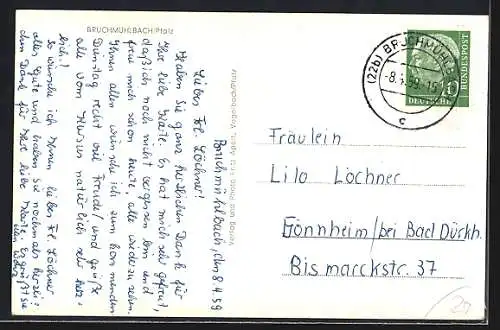 BRUCHMÜHLBACH/Pfalz
Bruchmühlbach, den 8.4.59
Liebes Frl. Löchner!
Haben Sie ganz herzlichen Dank für
Ihre liebe Karte. Es hat mich sehr gefreut,
daß ich noch nicht vergessen bin und
freue mich schon heute, alle wiederzusehen.
Ihnen allen wünsche ich zum kommenden
Dienstag recht viel Freude! und grüße
alle vom Herzen natürlich sehr herz-
lich!
So wünsche ich Ihnen, liebes Frl. Löchner,
alles Gute und haben Sie nochmals herzli-
chen Dank für Ihre liebe Karte. Es grüßt Sie
(22b) BRUCHMÜHLB
-8.4.59-15
c
10
DEUTSCHE
BUNDESPOST
Fräulein
Lilo Löchner
Gönnheim/bei Bad Dürkh.
Bismarckstr. 37